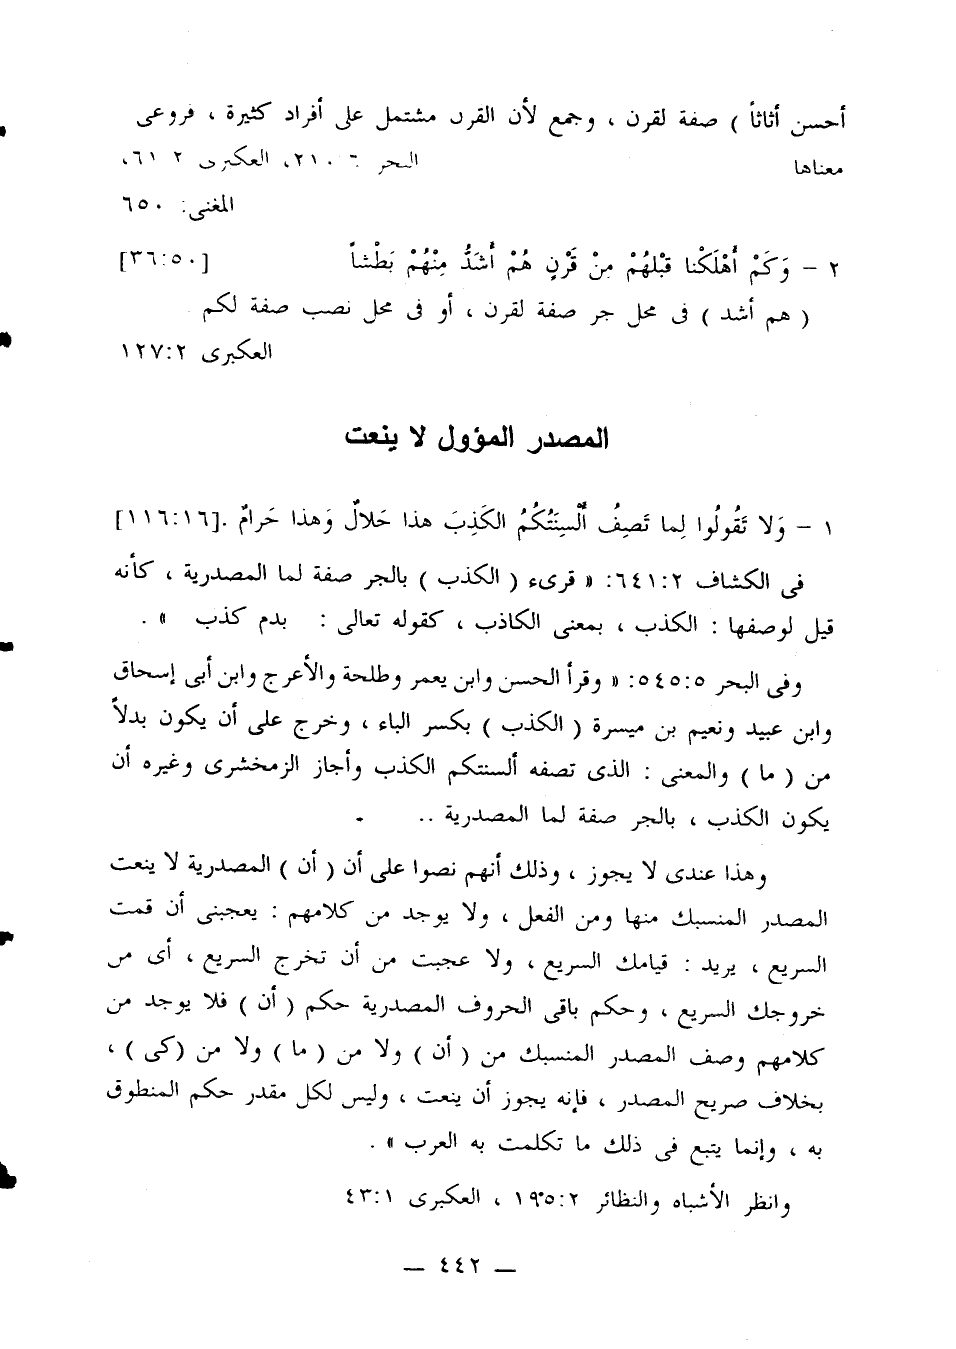 أحسن أثاثاً ) صفة لقرن ، وجمع لأن القرن مشتمل على أفراد كثيرة ، فروعى
معناها البحر ٦ ٢١٠، العكبرى ٢ ٦١،
المغنى: ٦٥٠
٢ – وَكَمْ أَهْلَكْنا قَبْلَهُمْ مِنْ قَرْنٍ هُمْ أَشَدُّ مِنْهُمْ بَطْشاً [٣٦:٥٠]
( هم أشد ) فى محل جر صفة لقرن ، أو فى محل نصب صفة لكم
العكبرى ١٢٧:٢
المصدر المؤول لا ينعت
١ – وَلا تَقُولُوا لِما تَصِفُ أَلْسِنَتُكُمُ الكَذِبَ هذا حَلالٌ وَهذا حَرامٌ .[١١٦:١٦]
فى الكشاف ٦٤١:٢: « قرىء ( الكذب ) بالجر صفة لما المصدرية ، كأنه
قيل لوصفها : الكذب ، بمعنى الكاذب ، كقوله تعالى : بدم كذب » .
وفى البحر ٥٤٥:٥: « وقرأ الحسن وابن يعمر وطلحة والأعرج وابن أبى إسحاق
وابن عبيد ونعيم بن ميسرة ( الكذب ) بكسر الباء ، وخرج على أن يكون بدلاً
من ( ما ) والمعنى : الذى تصفه ألسنتكم الكذب وأجاز الزمخشرى وغيره أن
يكون الكذب ، بالجر صفة لما المصدرية .. .
وهذا عندى لا يجوز ، وذلك أنهم نصوا على أن ( أن ) المصدرية لا ينعت
المصدر المنسبك منها ومن الفعل ، ولا يوجد من كلامهم : يعجبنى أن قمت
السريع ، يريد : قيامك السريع ، ولا عجبت من أن تخرج السريع ، أى من
خروجك السريع ، وحكم باقى الحروف المصدرية حكم ( أن ) فلا يوجد من
كلامهم وصف المصدر المنسبك من ( أن ) ولا من ( ما ) ولا من (كى ) ،
بخلاف صريح المصدر ، فإنه يجوز أن ينعت ، وليس لكل مقدر حكم المنطوق
به ، وإنما يتبع فى ذلك ما تكلمت به العرب » .
وانظر الأشباه والنظائر ١٩٥:٢ ، العكبرى ٤٣:١
— ٤٤٢ —